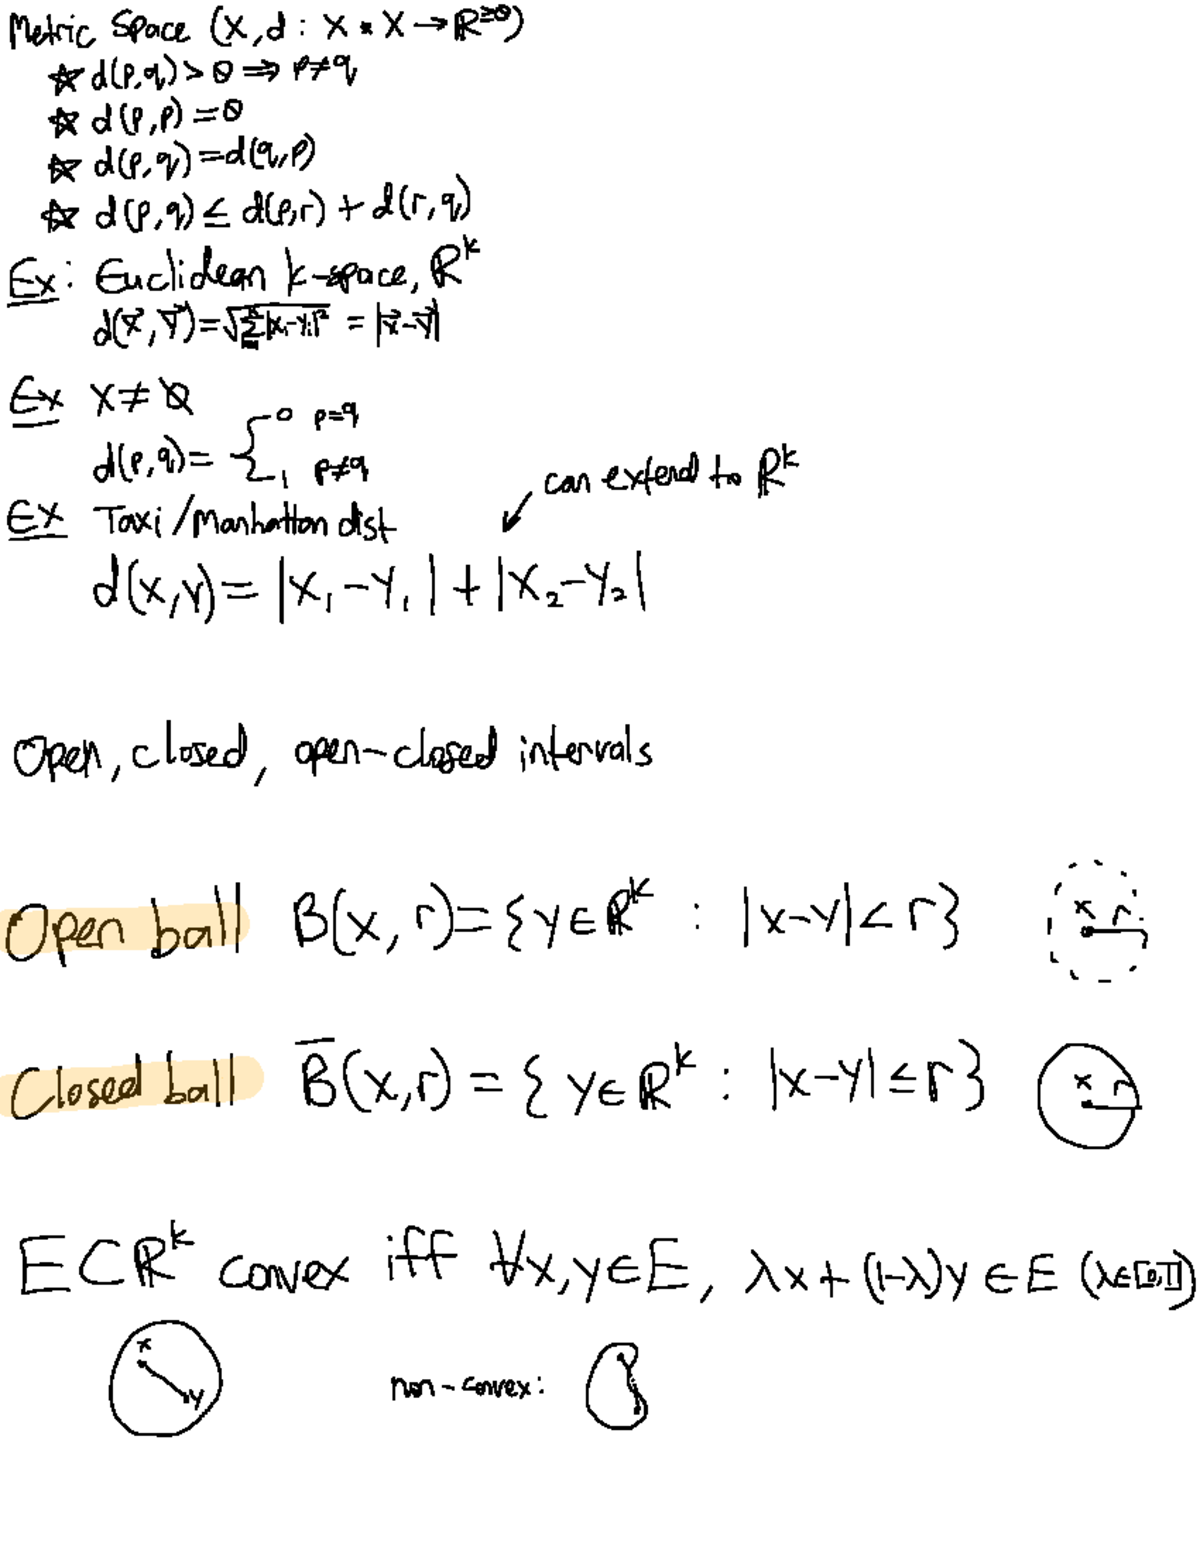 Metric Space (X, d : X × X → ℝ^≥0)
☆ d(p,q) > 0 ⇒ p≠q
☆ d(p,p) = 0
☆ d(p,q) = d(q,p)
☆ d(p,q) ≤ d(p,r) + d(r,q)
Ex: Euclidean k-space, ℝ^k
d(x⃗,y⃗) = √Σ|xᵢ-yᵢ|² = |x⃗-y⃗|
Ex X ≠ ∅
d(p,q) = { 0 p=q
1 p≠q
can extend to ℝ^k
Ex Taxi/Manhattan dist
d(x,y) = |x₁-y₁| + |x₂-y₂|
Open, closed, open-closed intervals
Open ball B(x, r) = {y ∈ ℝ^k : |x-y| < r}
x r
Closed ball B̅(x,r) = { y ∈ ℝ^k : |x-y| ≤ r}
x r
E ⊂ ℝ^k convex iff ∀x,y ∈ E, λx + (1-λ)y ∈ E (λ∈[0,1])
x
y
non-convex: